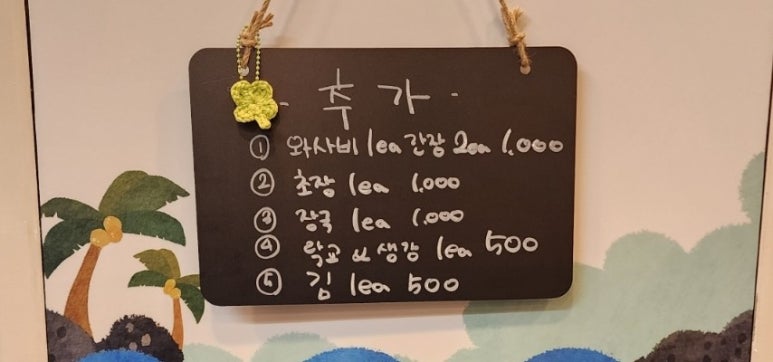 - 추가 -
① 와사비 1ea 간장 2ea 1,000
② 초장 1ea 1,000
③ 장국 1ea 1,000
④ 락교 or 생강 1ea 500
⑤ 김 1ea 500